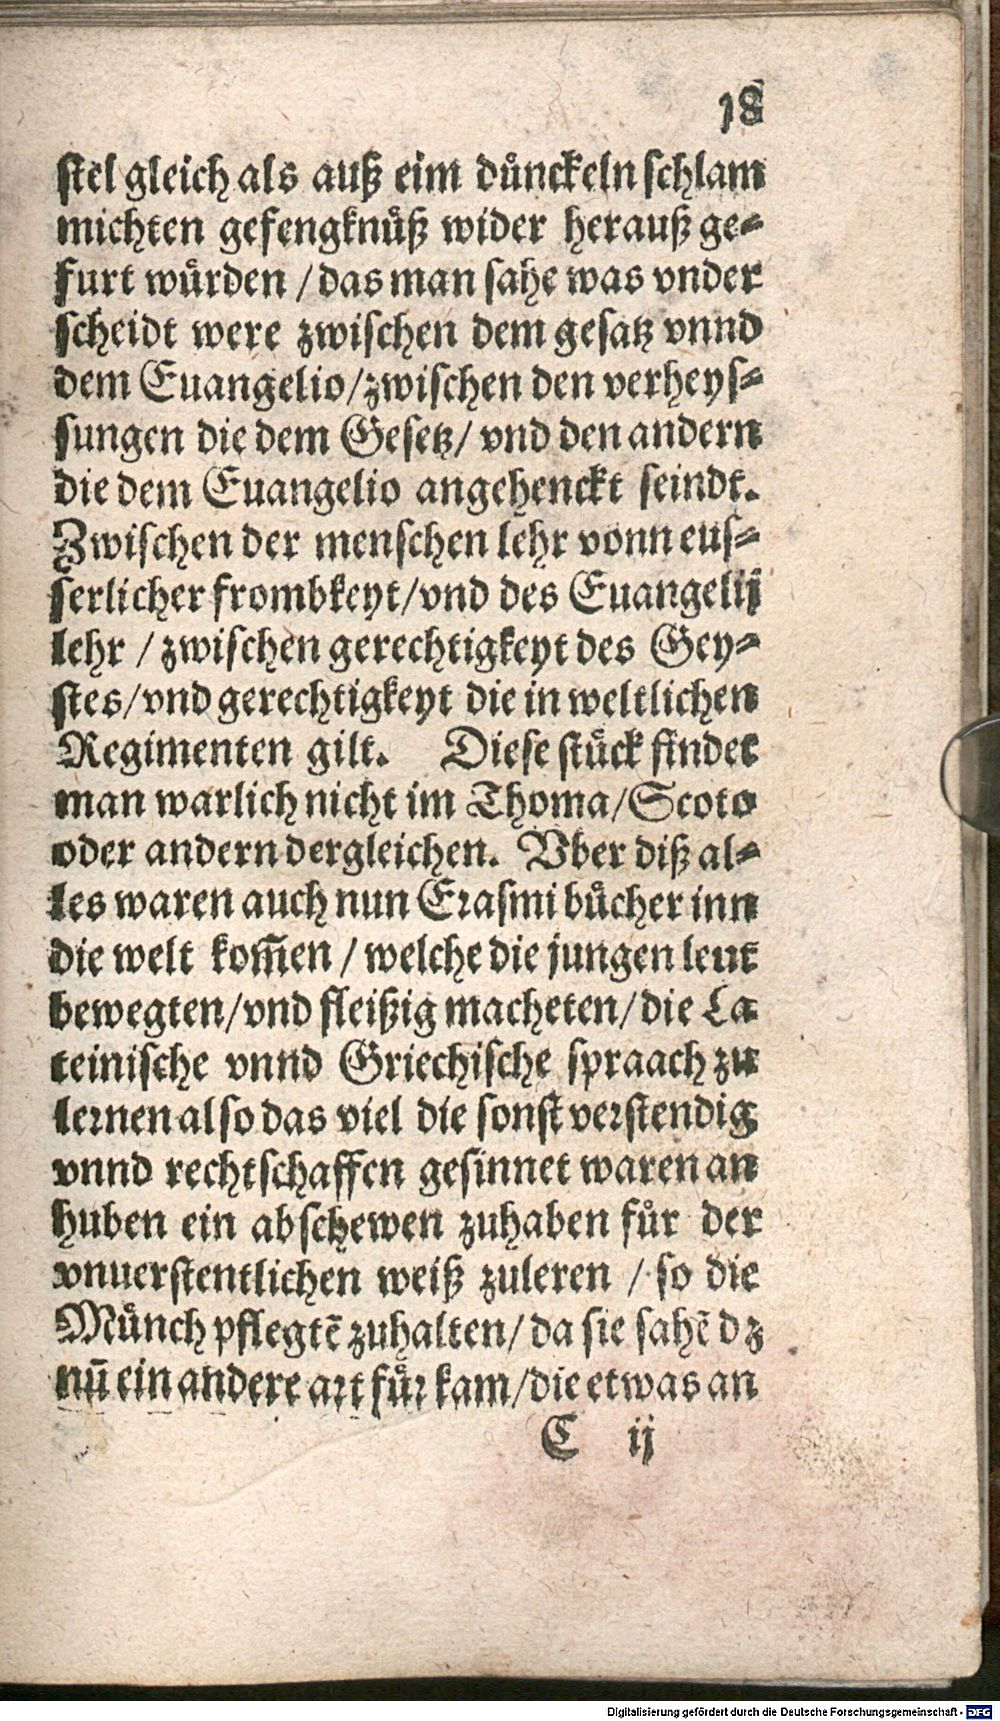 18
stel gleich als auß eim důnckeln schlam
michten gefengknůß wider herauß ge⸗
furt wůrden / das man sahe was vnder
scheidt were zwischen dem gesatz vnnd
dem Euangelio/zwischen den verheys⸗
sungen die dem Gesetz/ vnd den andern
die dem Euangelio angehenckt seindt.
Zwischen der menschen lehr vonn eus⸗
serlicher frombkeyt/vnd des Euangelij
lehr / zwischen gerechtigkeyt des Gey⸗
stes/vnd gerechtigkeyt die in weltlichen
Regimenten gilt. Diese stůck findet
man warlich nicht im Thoma/Scoto
oder andern dergleichen. Vber diß al⸗
les waren auch nun Erasmi bůcher inn
die welt kom̃en / welche die jungen leut
bewegten/vnd fleißig macheten/die La
teinische vnnd Griechische spraach zu
lernen also das viel die sonst verstendig
vnnd rechtschaffen gesinnet waren an
huben ein abschewen zuhaben fůr der
vnuerstentlichen weiß zuleren / so die
Můnch pflegtẽ zuhalten/ da sie sahẽ dz
nũ ein andere art fůr kam/die etwas an
C ij
Digitalisierung gefördert durch die Deutsche Forschungsgemeinschaft - DFG